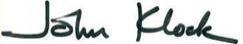 John Klock